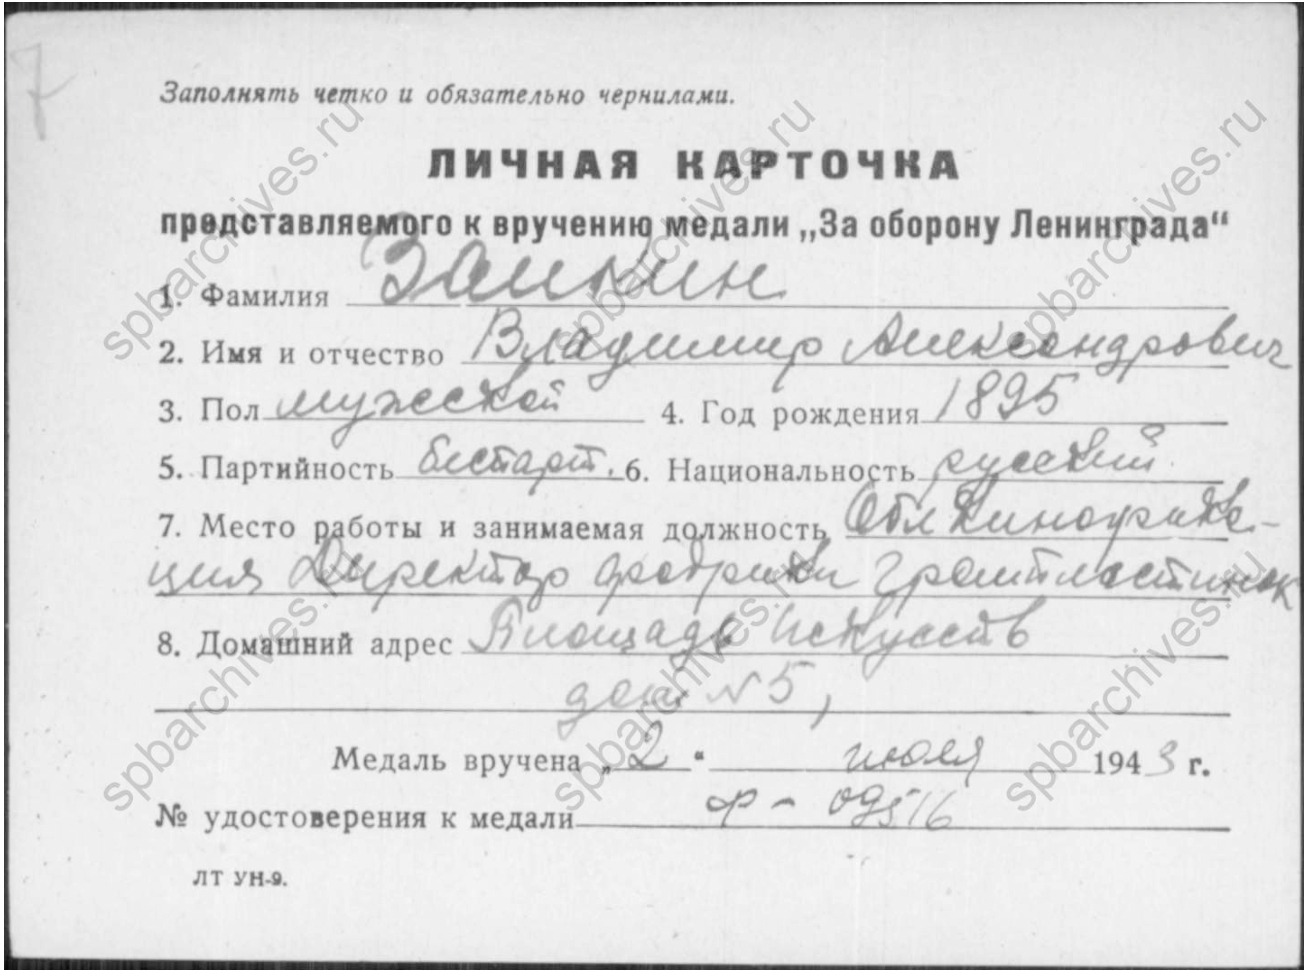 7
Заполнять четко и обязательно чернилами.
ЛИЧНАЯ КАРТОЧКА
представляемого к вручению медали „За оборону Ленинграда“
1. Фамилия Заикин
2. Имя и отчество Владимир Александрович
3. Пол мужской 4. Год рождения 1895
5. Партийность беспарт. 6. Национальность русский
7. Место работы и занимаемая должность Облкинофика-
ция Директор фабрики грампластинок
8. Домашний адрес Площадь Искусств
дом №5,
Медаль вручена „2“ июля 1943 г.
№ удостоверения к медали
ЛТ УН-9.
spbarchives.ru
spbarchives.ru
spbarchives.ru
spbarchives.ru
spbarchives.ru
spbarchives.ru